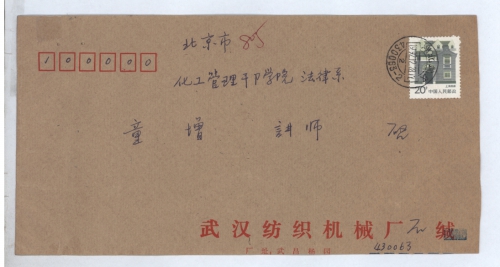 北京市 805
100000
化工管理干部学院 法律系
童增 讲师 启
20分 中国人民邮政
武汉纺织机械厂石缄
430063